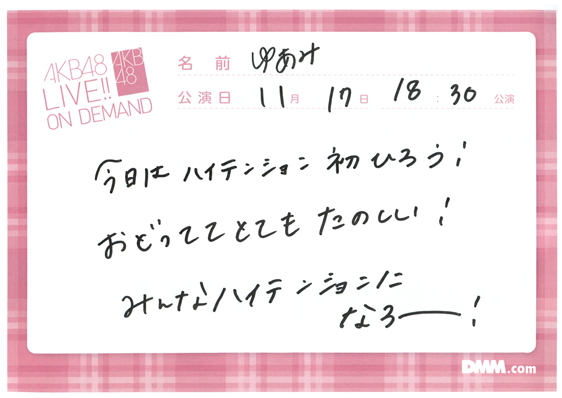 AKB48
LIVE!!
ON DEMAND
AKB
48
名前 ゆあみ
公演日 11月 17日 18:30 公演
今日は ハイテンション 初ひろう!
おどっててとても たのしい!
みんなハイテンションに
なろー!
DMM.com